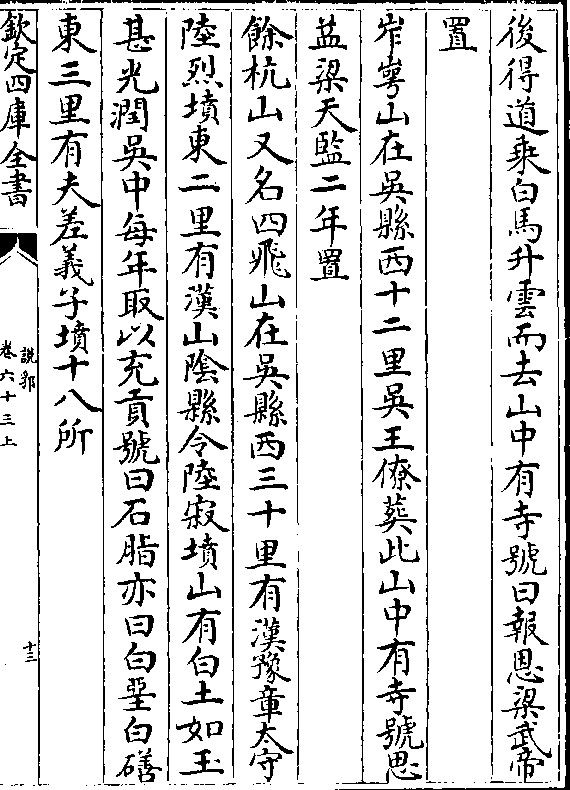 後得道乘白馬升雲而去山中有寺號曰報恩梁武帝
置
岝㟧山在吳縣西十二里吳王僚葬此山中有寺號思
益梁天監二年置
餘杭山又名四飛山在吳縣西三十里有漢豫章太守
陸烈墳東二里有漢山陰縣令陸寂墳山有白土如玉
甚光潤吳中每年取以充貢號曰石脂亦曰白堊白磰
東三里有夫差義子墳十八所
欽定四庫全書
說郛
卷六十三上
十三